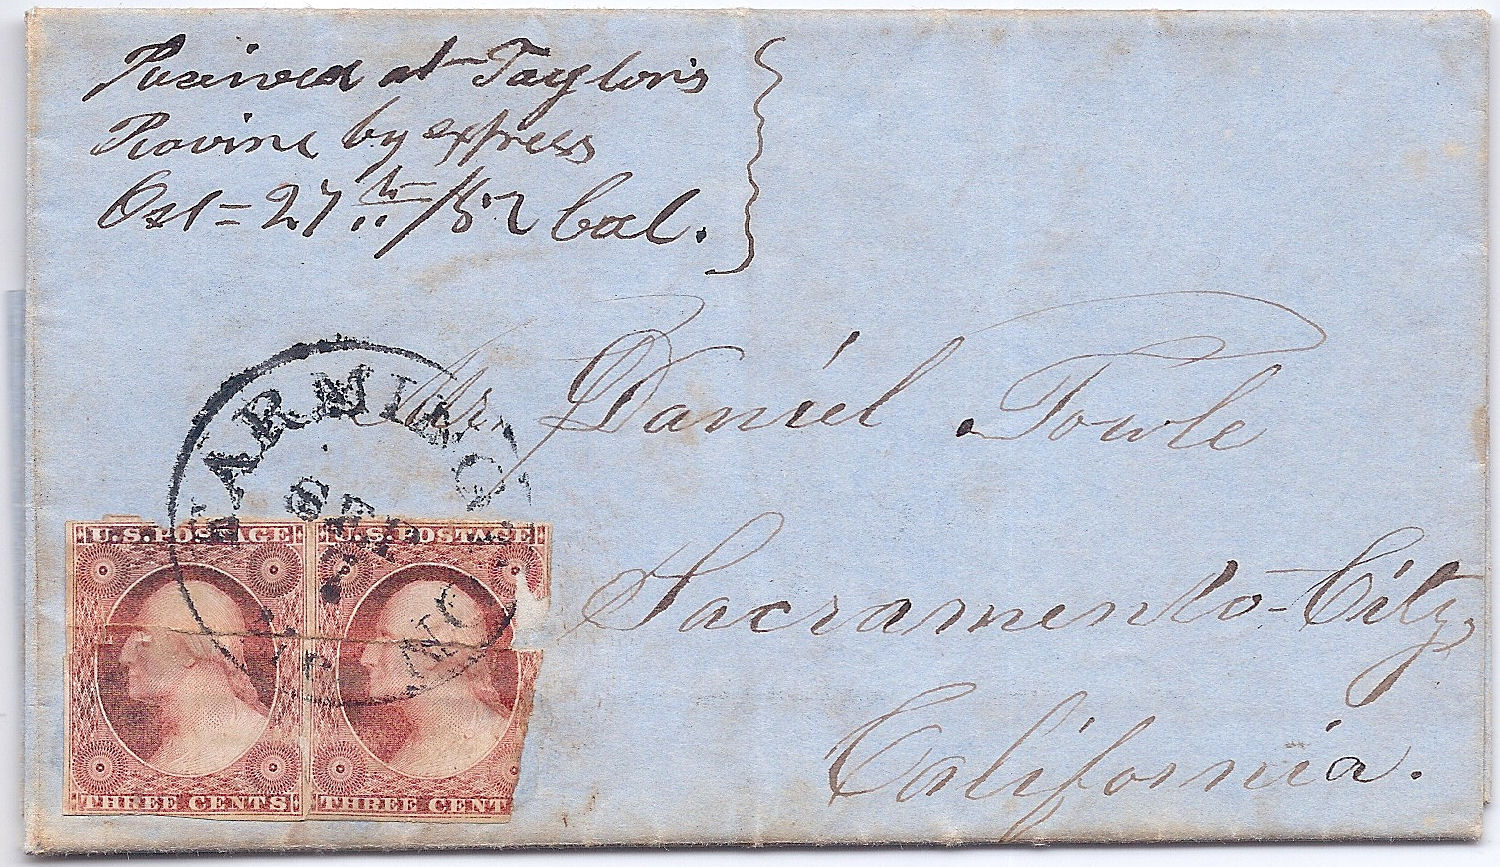 Received at Taylor's
Ravine by express
Oct = 27th /52 Cal.
Mr. Daniel Towle
Sacramento-City,
California.
FARMI
SEP
U.S. POSTAGE U.S. POSTAGE
THREE CENTS THREE CENT